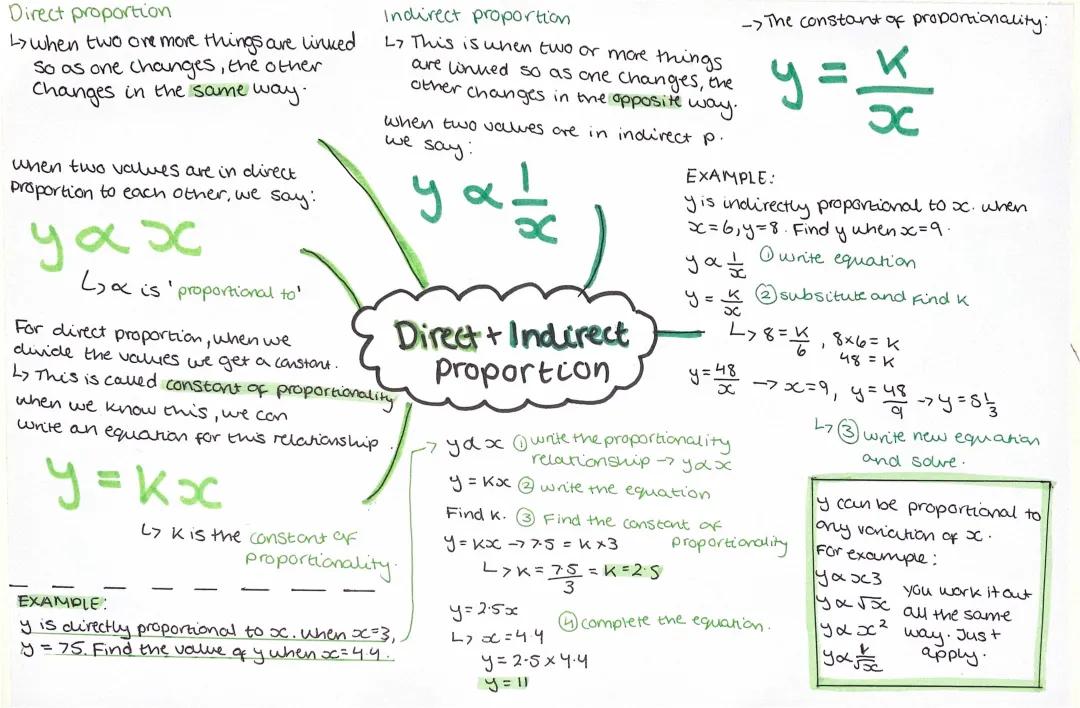 Direct proportion
↳ when two or more things are linked
so as one changes, the other
changes in the same way.
when two values are in direct
proportion to each other, we say:
y ∝ x
↳ ∝ is 'proportional to'
For direct proportion, when we
divide the values we get a constant.
↳ This is called constant of proportionality
when we know this, we can
write an equation for this relationship.
y = Kx
↳ K is the constant of
proportionality.
EXAMPLE:
y is directly proportional to x. when x=3,
y = 75. Find the value of y when x=4.4.
Indirect proportion
↳ This is when two or more things
are linked so as one changes, the
other changes in the opposite way.
when two values are in indirect p.
we say:
y ∝ 1/x
Direct + Indirect
proportion
→ y ∝ x ① write the proportionality
relationship → y ∝ x
y = Kx ② write the equation
Find K. ③ Find the constant of
proportionality
y = Kx → 7.5 = K x 3
↳ K = 7.5/3 = K = 2.5
y = 2.5x ④ complete the equation.
↳ x = 4.4
y = 2.5 x 4.4
y = 11
→ The constant of proportionality:
y = K/x
EXAMPLE:
y is indirectly proportional to x. when
x=6, y=8. Find y when x=9.
y ∝ 1/x ① write equation
y = K/x ② subsitute and Find K
↳ 8 = K/6, 8x6 = K
48 = K
y = 48/x → x=9, y = 48/9 → y = 5 1/3
↳ ③ write new equation
and solve.
y can be proportional to
any variation of x.
For example:
y ∝ x3
y ∝ √x
y ∝ x²
y ∝ 1/√x
you work it out
all the same
way. Just
apply.